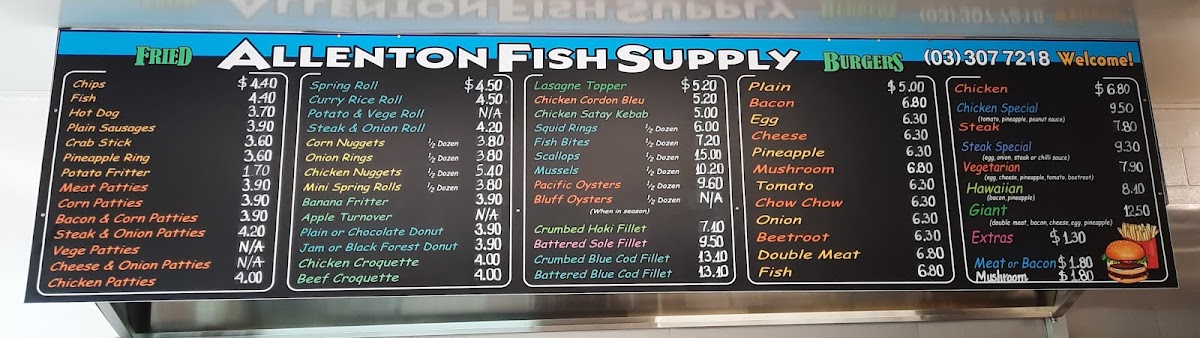 FRIED ALLENTON FISH SUPPLY BURGERS (03) 307 7218 Welcome!
Chips $4.40
Fish 4.40
Hot Dog 3.70
Plain Sausages 3.90
Crab Stick 3.60
Pineapple Ring 3.60
Potato Fritter 1.70
Meat Patties 3.90
Corn Patties 3.90
Bacon & Corn Patties 3.90
Steak & Onion Patties 4.20
Vege Patties N/A
Cheese & Onion Patties N/A
Chicken Patties 4.00
Spring Roll $4.50
Curry Rice Roll 4.50
Potato & Vege Roll N/A
Steak & Onion Roll 4.20
Corn Nuggets ½ Dozen 3.80
Onion Rings ½ Dozen 3.80
Chicken Nuggets ½ Dozen 5.40
Mini Spring Rolls ½ Dozen 3.80
Banana Fritter 3.90
Apple Turnover N/A
Plain or Chocolate Donut 3.90
Jam or Black Forest Donut 3.90
Chicken Croquette 4.00
Beef Croquette 4.00
Lasagne Topper $5.20
Chicken Cordon Bleu 5.20
Chicken Satay Kebab 5.00
Squid Rings ½ Dozen 6.00
Fish Bites ½ Dozen 7.20
Scallops ½ Dozen 15.00
Mussels ½ Dozen 10.20
Pacific Oysters ½ Dozen 9.60
Bluff Oysters ½ Dozen N/A
(When in season)
Crumbed Hoki Fillet 7.10
Battered Sole Fillet 9.50
Crumbed Blue Cod Fillet 13.10
Battered Blue Cod Fillet 13.10
Plain $5.00
Bacon 6.80
Egg 6.30
Cheese 6.30
Pineapple 6.30
Mushroom 6.80
Tomato 6.30
Chow Chow 6.30
Onion 6.30
Beetroot 6.30
Double Meat 6.80
Fish 6.80
Chicken $6.80
Chicken Special 9.50
(tomato, pineapple, peanut sauce)
Steak 7.80
Steak Special 9.30
(egg, onion, steak or chilli sauce)
Vegetarian 7.90
(egg, cheese, pineapple, tomato, beetroot)
Hawaiian 8.10
(bacon, pineapple)
Giant 12.50
(double meat, bacon, cheese, egg, pineapple)
Extras $1.30
Meat or Bacon $1.80
Mushroom $1.80